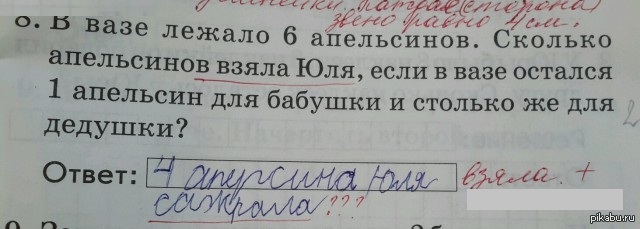 звено равно 4 см.
8. В вазе лежало 6 апельсинов. Сколько
апельсинов взяла Юля, если в вазе остался
1 апельсин для бабушки и столько же для
дедушки?
Ответ: 4 апурсина Юля взяла. +
сажрала???
pikabu.ru